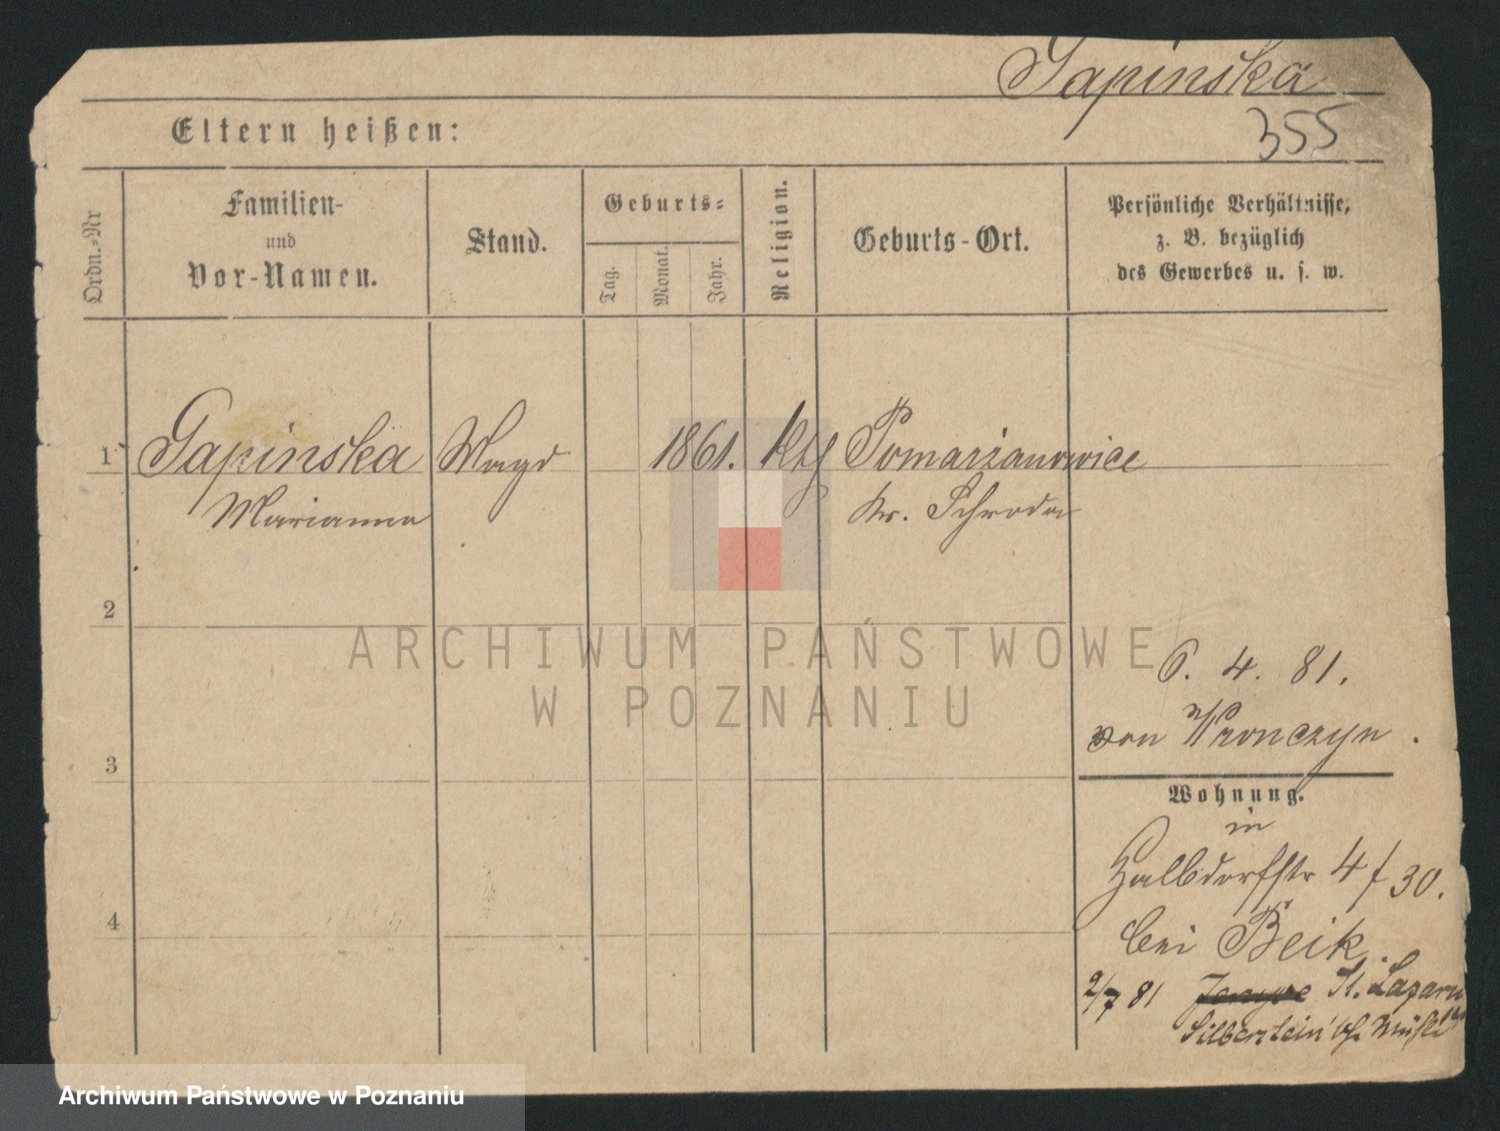 Gapinska
355
Eltern heißen:
Ordn.-Nr
Familien-
und
Vor-Namen.
Stand.
Geburts-
Tag.
Monat.
Jahr.
Religion.
Geburts-Ort.
Persönliche Verhältnisse,
z. B. bezüglich
des Gewerbes u. s. w.
1 Gapinska Magd 1861. Kth Pomarzanowice
Marianna Kr. Schroda
2
6. 4. 81.
von Wronczyn.
3
Wohnung.
in
Halbdorfstr 4/30.
bei Beik.
4
2/7 81 St. Lazarus
Silberstein'sche Mühle
ARCHIWUM PAŃSTWOWE
W POZNANIU
Archiwum Państwowe w Poznaniu